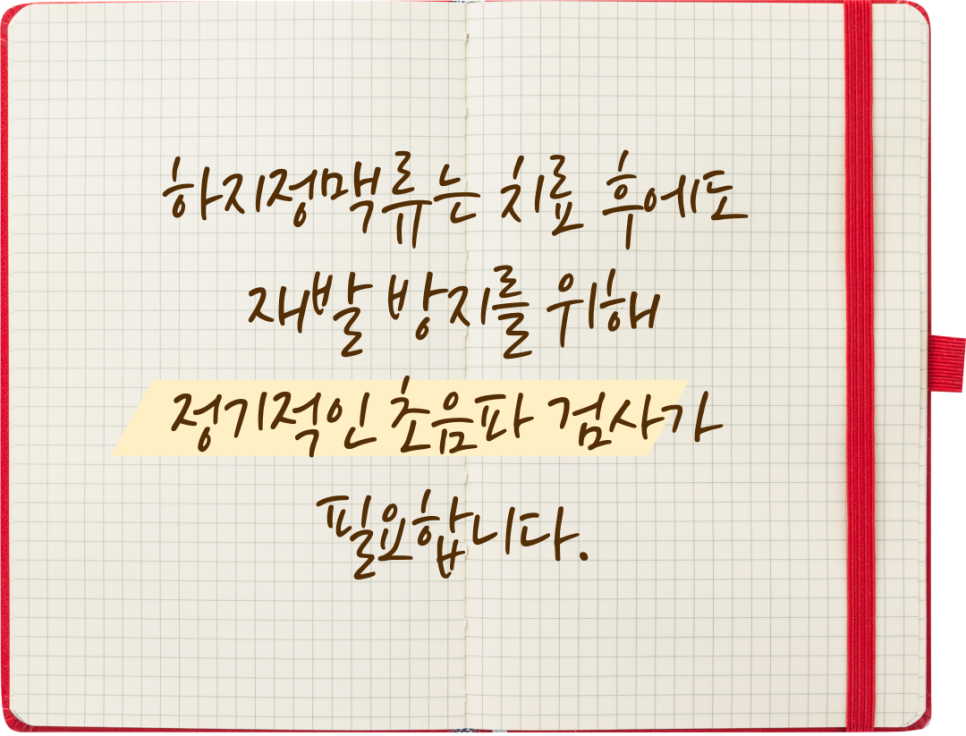 하지정맥류는 치료 후에도
재발 방지를 위해
정기적인 초음파 검사가
필요합니다.